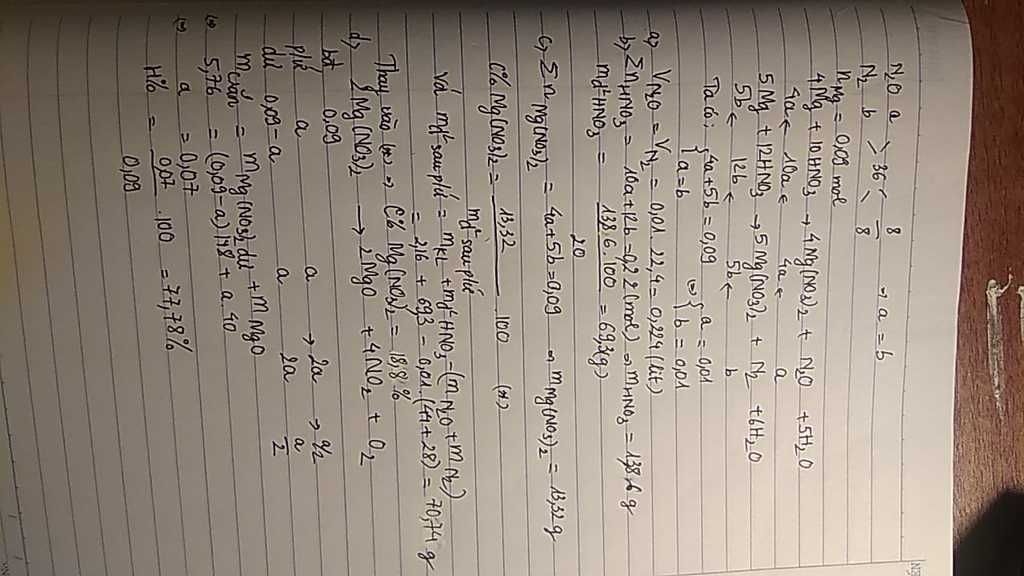 N₂O a 8
36 — ⇒ a = b
N₂ b 8
nMg = 0,09 mol
4Mg + 10HNO₃ → 4Mg(NO₃)₂ + N₂O + 5H₂O
4a ← 10a ← 4a ← a
5Mg + 12HNO₃ → 5Mg(NO₃)₂ + N₂ + 6H₂O
5b ← 12b ← 5b ← b
Ta có: { 4a + 5b = 0,09 ⇔ { a = 0,01
{ a = b { b = 0,01
a, V N₂O = V N₂ = 0,01 . 22,4 = 0,224 (lít)
b, Σ nHNO₃ = 10a + 12b = 0,22 (mol) ⇒ mHNO₃ = 13,86 g
mdd HNO₃ = 13,86.100 / 20 = 69,3 (g)
c, Σ nMg(NO₃)₂ = 4a + 5b = 0,09 ⇒ mMg(NO₃)₂ = 13,32 g
C% Mg(NO₃)₂ = 13,32 / mdd sau pứ . 100 (*)
Với mdd sau pứ = mKl + mdd HNO₃ - (mN₂O + mN₂)
= 2,16 + 69,3 - 0,01 (44 + 28) = 70,74 g
Thay vào (*) ⇒ C% Mg(NO₃)₂ = 18,8%
d, 2Mg(NO₃)₂ → 2MgO + 4NO₂ + O₂
bđ 0,09
pứ a a → 2a → a/2
dư 0,09-a a 2a a/2
m rắn = mMg(NO₃)₂ dư + mMgO
⇔ 5,76 = (0,09-a)148 + a.40
⇔ a = 0,07
H% = 0,07 / 0,09 . 100 = 77,78%